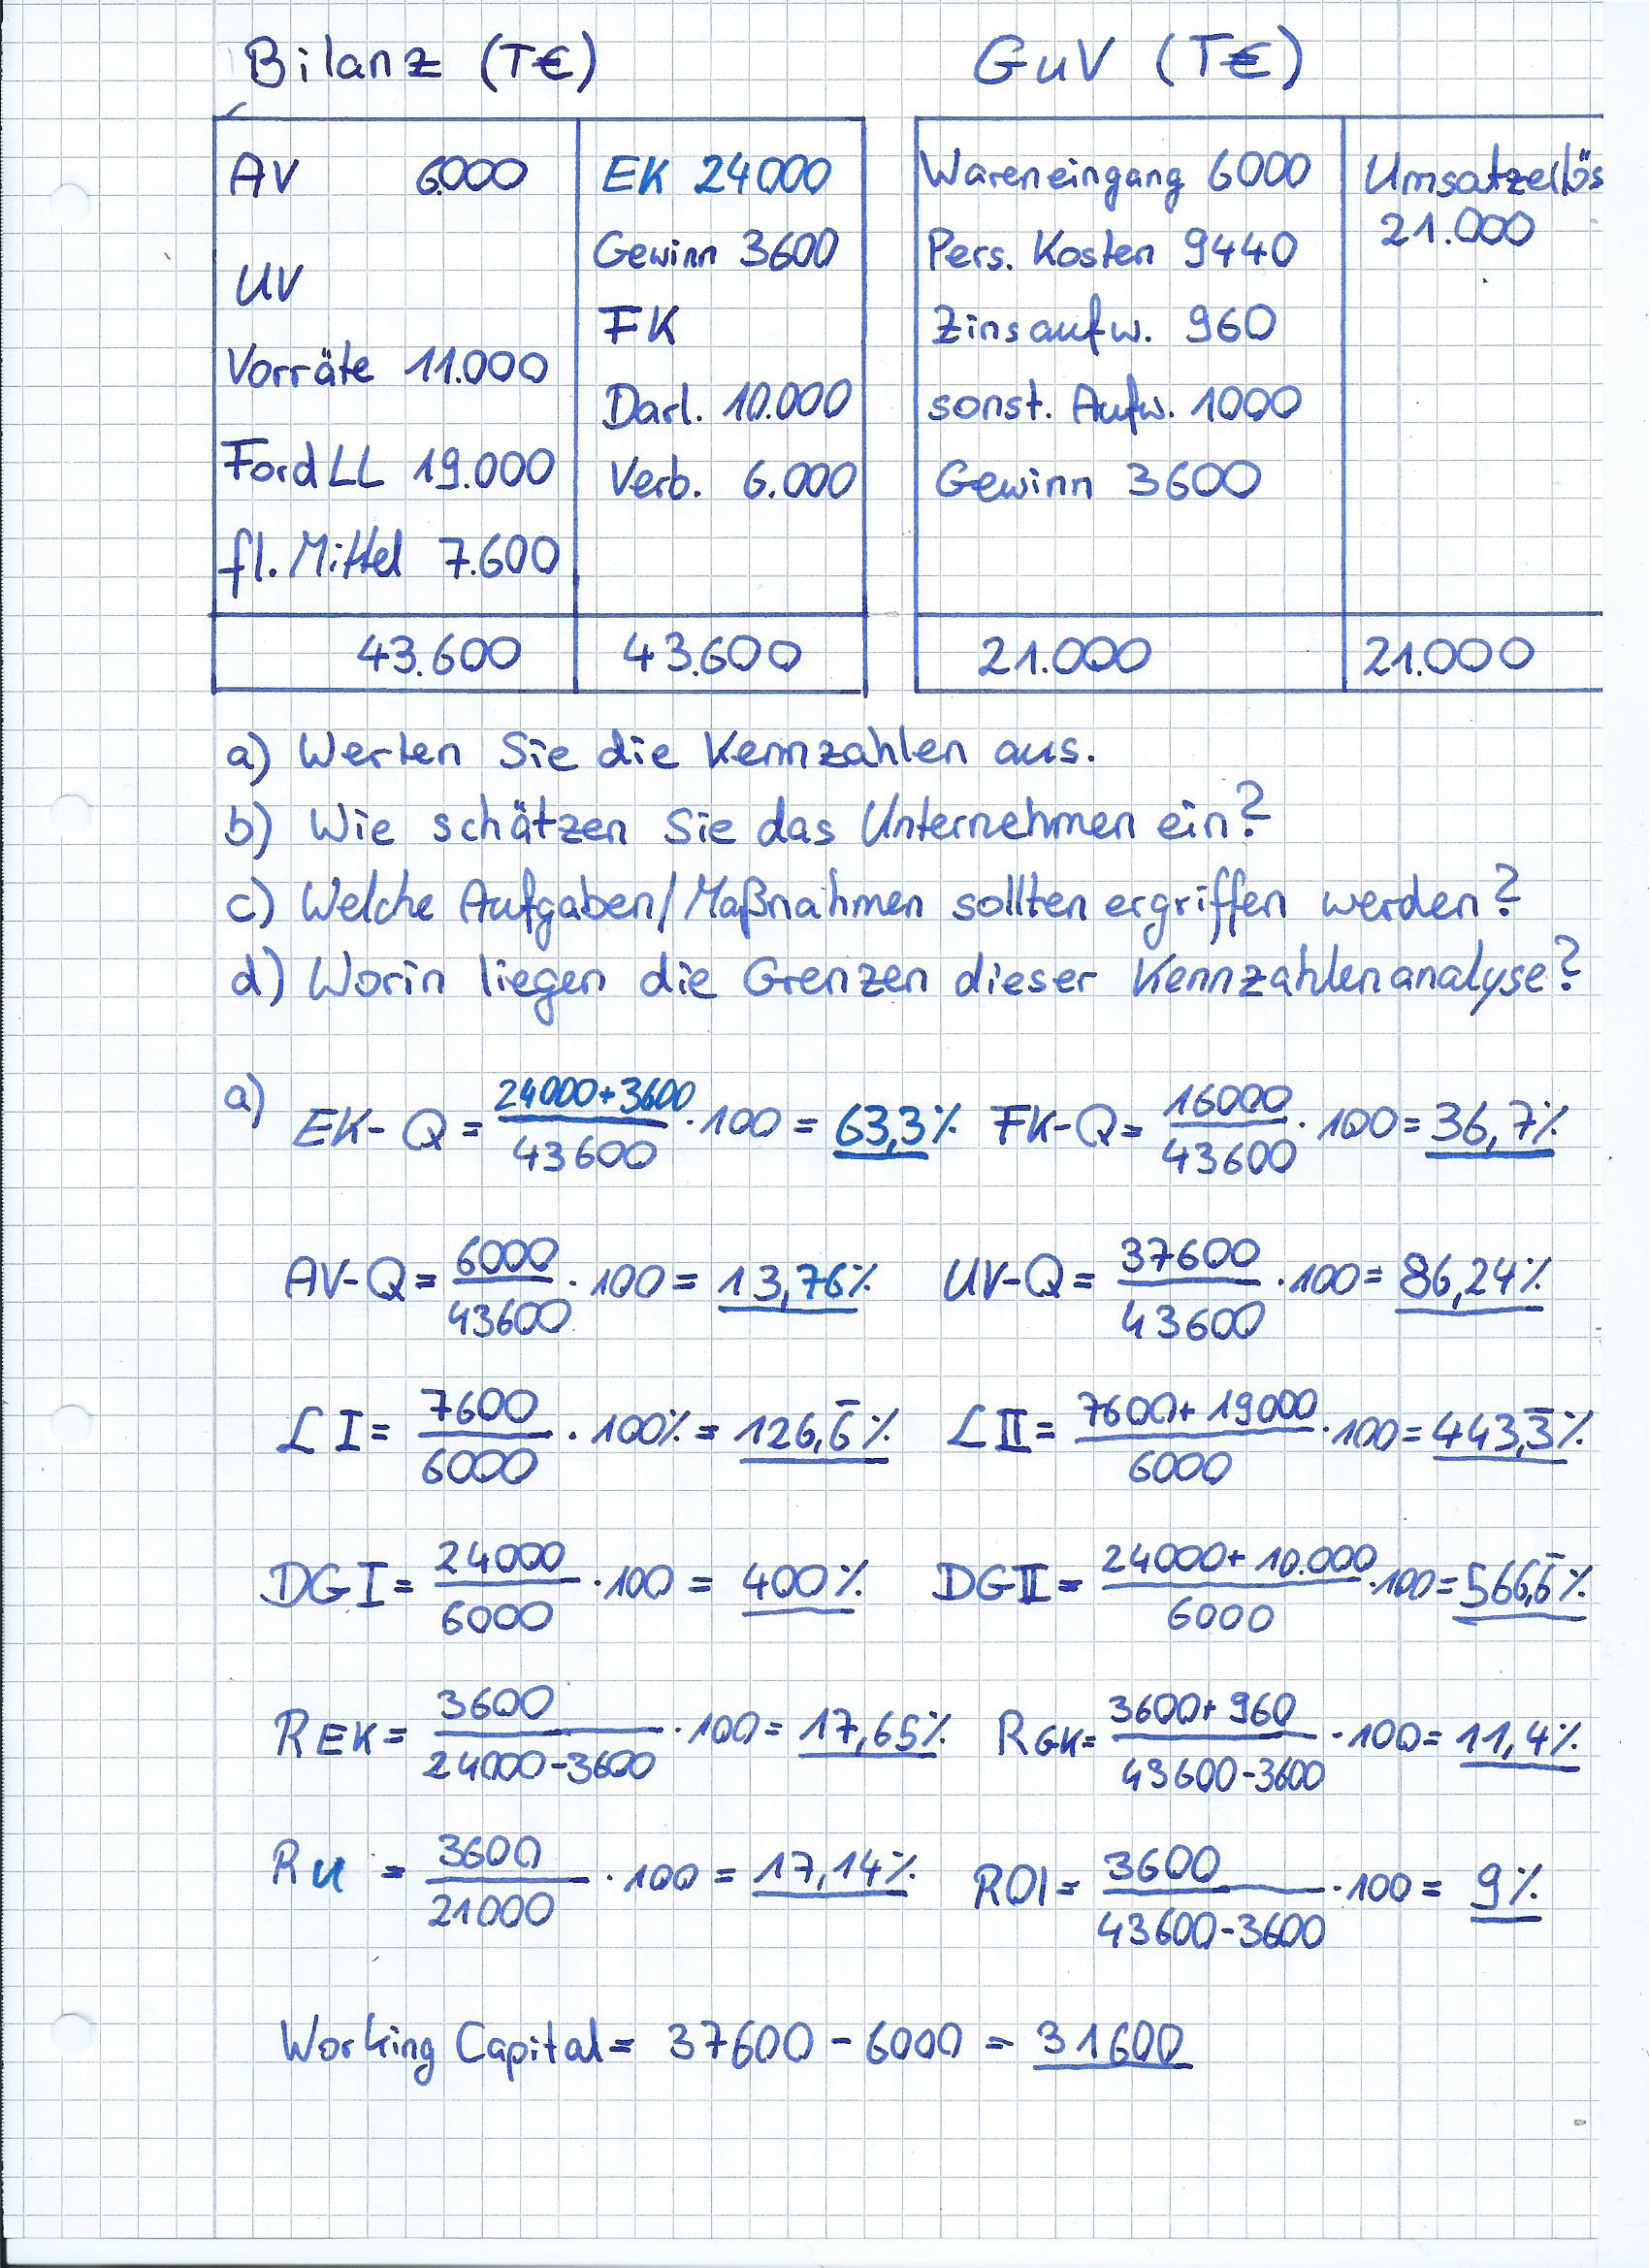 Bilanz (T€) GuV (T€)
AV 6.000 EK 24000 Wareneingang 6000 Umsatzerlös
Gewinn 3600 Pers. Kosten 9440 21.000
UV
FK Zinsaufw. 960
Vorräte 11.000
Darl. 10.000 sonst. Aufw. 1000
Ford LL 19.000 Verb. 6.000 Gewinn 3600
fl. Mittel 7.600
43.600 43.600 21.000 21.000
a) Werten Sie die Kennzahlen aus.
b) Wie schätzen Sie das Unternehmen ein?
c) Welche Aufgaben/Maßnahmen sollten ergriffen werden?
d) Worin liegen die Grenzen dieser Kennzahlenanalyse?
a) EK-Q = 24000+3600 / 43600 · 100 = 63,3% FK-Q = 16000 / 43600 · 100 = 36,7%
AV-Q = 6000 / 43600 · 100 = 13,76% UV-Q = 37600 / 43600 · 100 = 86,24%
L I = 7600 / 6000 · 100% = 126,6̅% L II = 7600+19000 / 6000 · 100 = 443,3̅%
DG I = 24000 / 6000 · 100 = 400% DG II = 24000+10.000 / 6000 · 100 = 566,6̅%
REK = 3600 / 24000-3600 · 100 = 17,65% RGK = 3600+960 / 43600-3600 · 100 = 11,4%
RU = 3600 / 21000 · 100 = 17,14% ROI = 3600 / 43600-3600 · 100 = 9%
Working Capital = 37600 - 6000 = 31600